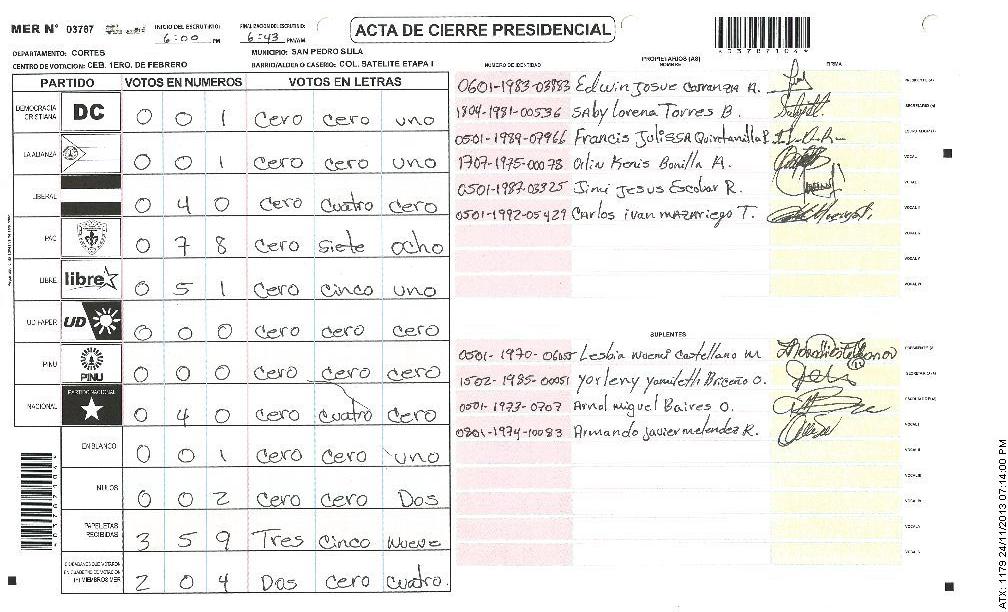 MER Nº 03787 INICIO DEL ESCRUTINIO: 6:00 PM FINALIZACION DEL ESCRUTINIO: 6:43 PM/AM ACTA DE CIERRE PRESIDENCIAL
DEPARTAMENTO: CORTES MUNICIPIO: SAN PEDRO SULA
CENTRO DE VOTACION: CEB. 1ERO. DE FEBRERO BARRIO/ALDEA O CASERIO: COL. SATELITE ETAPA I
PARTIDO VOTOS EN NUMEROS VOTOS EN LETRAS
DEMOCRACIA CRISTIANA DC 0 0 1 Cero cero uno
LA ALIANZA 0 0 1 Cero cero uno
LIBERAL 0 4 0 Cero Cuatro cero
PAC 0 7 8 Cero siete ocho
LIBRE libre 0 5 1 Cero Cinco uno
UD FAPER UD 0 0 0 Cero cero cero
PINU PINU 0 0 0 Cero cero cero
NACIONAL PARTIDO NACIONAL 0 4 0 Cero Cuatro Cero
EN BLANCO 0 0 1 Cero Cero uno
NULOS 0 0 2 Cero Cero Dos
PAPELETAS RECIBIDAS 3 5 9 Tres Cinco Nueve
CIUDADANOS QUE VOTARON EN CUADERNO DE VOTACION (+) MIEMBROS MER 2 0 4 Dos cero cuatro.
PROPIETARIOS (AS)
NUMERO DE IDENTIDAD NOMBRE FIRMA
0601-1983-03883 Edwin Josue Carranza R. PRESIDENTE (A)
1804-1981-00536 Saby Lorena Torres B. SECRETARIO (A)
0501-1989-07966 Francis Julissa Quintanilla P. ESCRUTADOR (A)
1707-1975-00078 Orlin Kenis Bonilla A. VOCAL I
0501-1987-03325 Jimi Jesus Escobar R. VOCAL II
0501-1992-05429 Carlos ivan Mazariego T. VOCAL III
SUPLENTES
0501-1970-0605 Lesbia Noemi Castellano M PRESIDENTE (A)
1502-1985-00051 Yorleny Yamileth Briceño O. SECRETARIO (A)
0501-1973-0707 Arnol Miguel Baires O. ESCRUTADOR (A)
0801-1974-10083 Armando Javier melendez R. VOCAL I
ATX: 1179 24/11/2013 07:14:00 PM